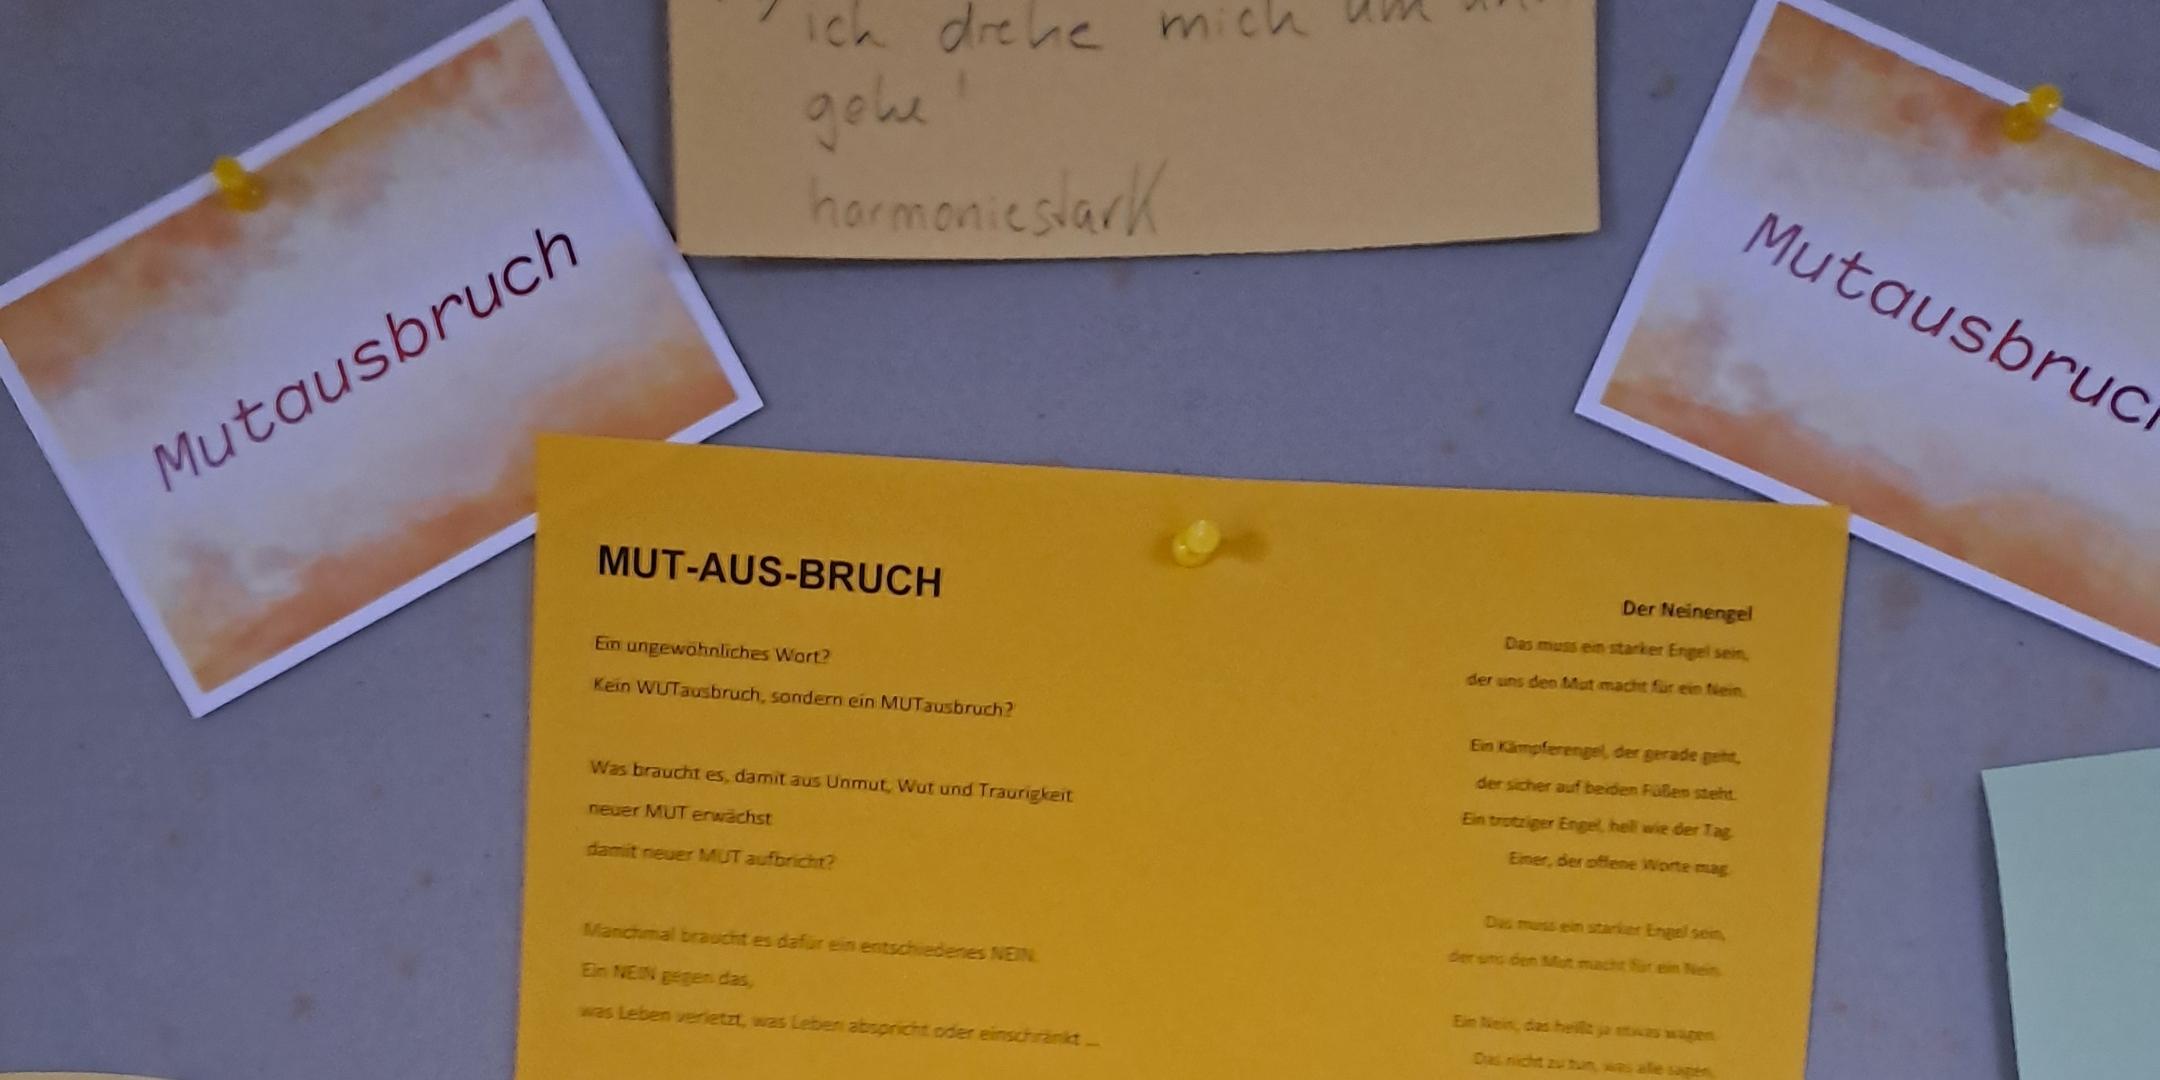 ich drehe mich um
gehe!
harmoniestark
Mutausbruch
Mutausbruch
MUT-AUS-BRUCH
Ein ungewöhnliches Wort?
Kein WUTausbruch, sondern ein MUTausbruch?
Was braucht es, damit aus Unmut, Wut und Traurigkeit
neuer MUT erwächst
damit neuer MUT aufbricht?
Manchmal braucht es dafür ein entschiedenes NEIN.
Ein NEIN gegen das,
was Leben verletzt, was Leben abspricht oder einschränkt ...
Der Neinengel
Das muss ein starker Engel sein,
der uns den Mut macht für ein Nein.
Ein Kämpferengel, der gerade geht,
der sicher auf beiden Füßen steht.
Ein trotziger Engel, hell wie der Tag.
Einer, der offene Worte mag.
Das muss ein starker Engel sein,
der uns den Mut macht für ein Nein.
Ein Nein, das heißt ja etwas wagen.
Das nicht zu tun, was alle sagen,